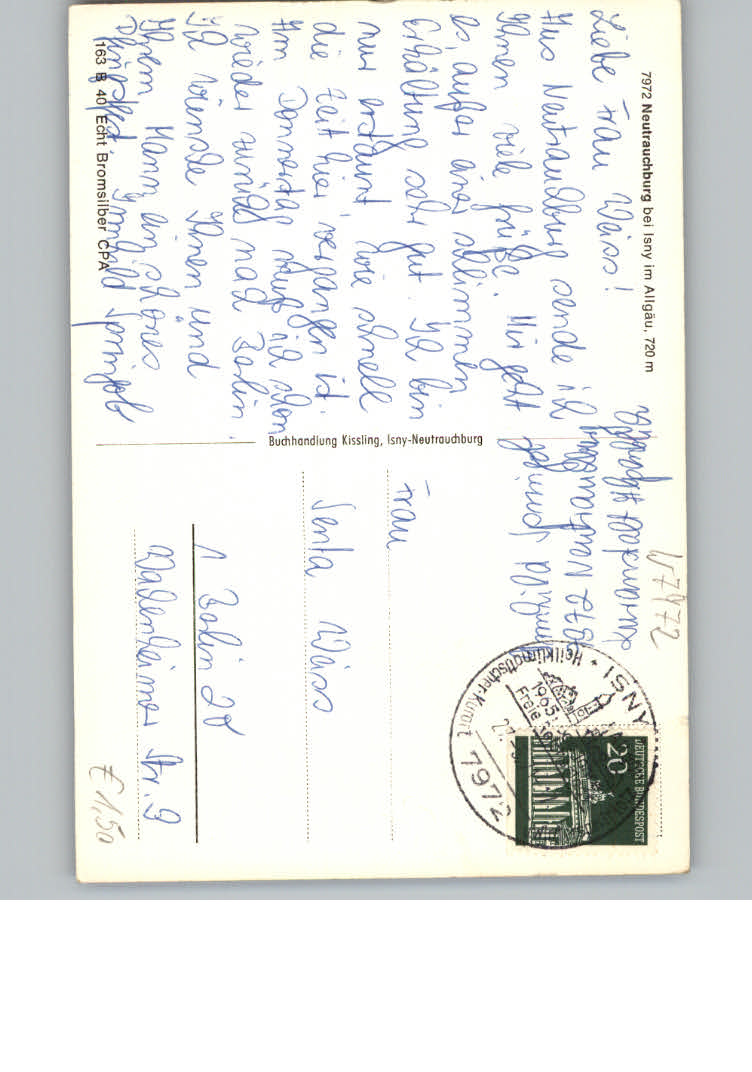 7972 Neutrauchburg bei Isny im Allgäu, 720 m
Liebe Frau Weiss!
Aus Neutrauchburg sende ich
Ihnen viele Grüße. Mir geht
es, außer einer schlimmen
Erkältung sehr gut. Ich bin
nur erstaunt wie schnell
die Zeit hier vergangen ist.
Am Donnerstag muß ich schon
wieder zurück nach Berlin.
Ich wünsche Ihnen und
Ihrem Mann ein schönes
Pfingstfest.
163 B 40 Echt Bromsilber CPA
Buchhandlung Kissling, Isny-Neutrauchburg
7972
W7972
ISNY
Heilklimatischer Kurort
1965
Freie
7972
20
DEUTSCHE BUNDESPOST
Frau
Senta Weiss
1 Berlin 20
Str. 9
€ 1,50